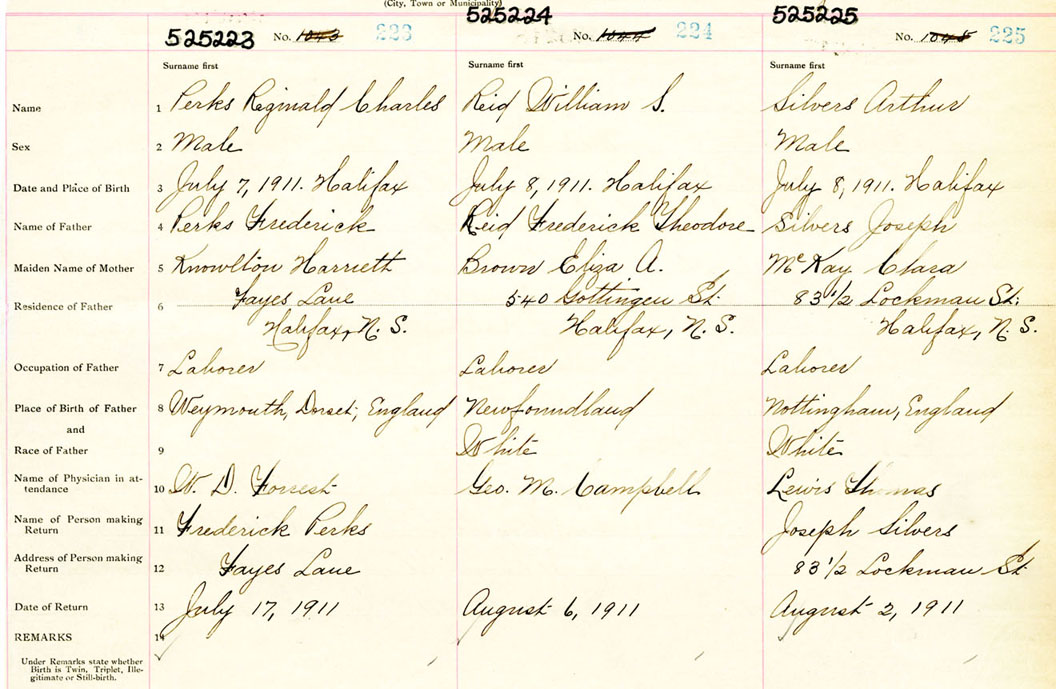 (City, Town or Municipality)
525223 No. 1043 223
525224 No. 1044 224
525225 No. 1045 225
Surname first Surname first Surname first
Name 1 Perks Reginald Charles Reid William S. Silvers Arthur
Sex 2 Male Male Male
Date and Place of Birth 3 July 7, 1911. Halifax July 8, 1911. Halifax July 8, 1911. Halifax
Name of Father 4 Perks Frederick Reid Frederick Theodore Silvers Joseph
Maiden Name of Mother 5 Knowlton Harriett Brown Eliza A. McKay Clara
Residence of Father 6 Fayes Lane 540 Gottingen St. 83 1/2 Lockman St.
Halifax, N. S. Halifax, N. S. Halifax, N. S.
Occupation of Father 7 Laborer Laborer Laborer
Place of Birth of Father 8 Weymouth, Dorset, England Newfoundland Nottingham, England
and
Race of Father 9 White White
Name of Physician in at-
tendance 10 W. D. Forrest Geo. M. Campbell Lewis Thomas
Name of Person making
Return 11 Frederick Perks Joseph Silvers
Address of Person making
Return 12 Fayes Lane 83 1/2 Lockman St
Date of Return 13 July 17, 1911 August 6, 1911 August 2, 1911
REMARKS 14
Under Remarks state whether
Birth is Twin, Triplet, Ille-
gitimate or Still-birth.